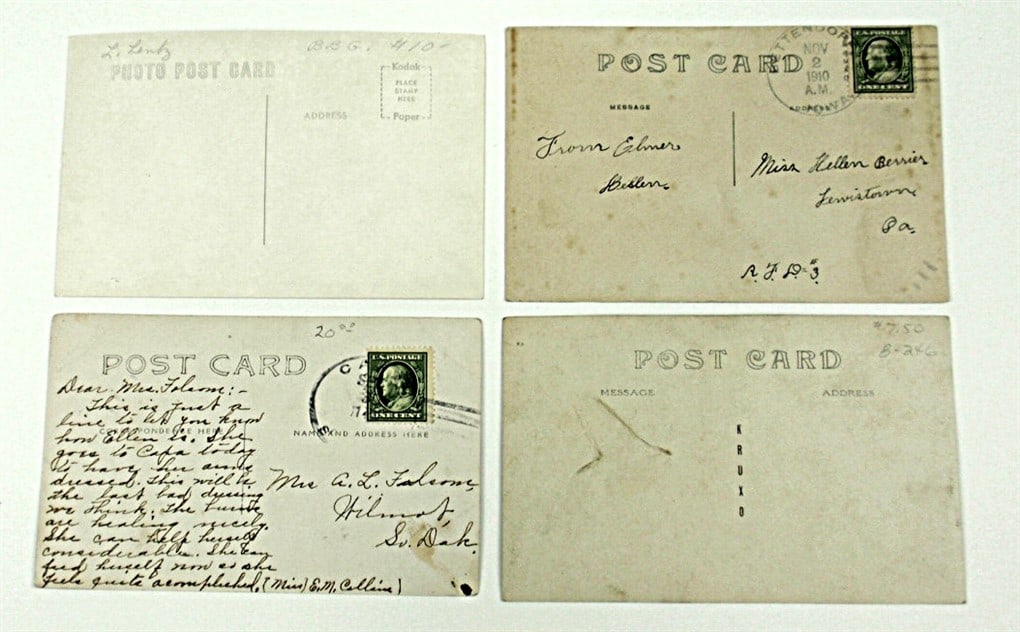 L. Lentz
BBG. 410-
PHOTO POST CARD
Kodak
PLACE
STAMP
HERE
Paper
ADDRESS
POST CARD
NOV
2
1910
A.M.
U.S. POSTAGE
ONE CENT
MESSAGE
ADDRESS
From Elmer
Miss Hellen Berrier
Lewistown
Pa.
R.F.D. #3
20
POST CARD
U.S. POSTAGE
ONE CENT
CORRESPONDENCE HERE
NAME AND ADDRESS HERE
Dear Mrs. Folsom:-
This is just a
line to let you know
how Ellen is. She
goes to Capa today
to have her arms
dressed. This will be
the last bad dressing
we think. The burns
are healing nicely.
She can help herself
considerable. She can
feed herself now so she
feels quite acomplished. (Miss) E.M. Collins)
Mrs A. L. Folsom,
Wilmot,
So. Dak.
$7.50
B-246
POST CARD
MESSAGE
ADDRESS
KRUXO